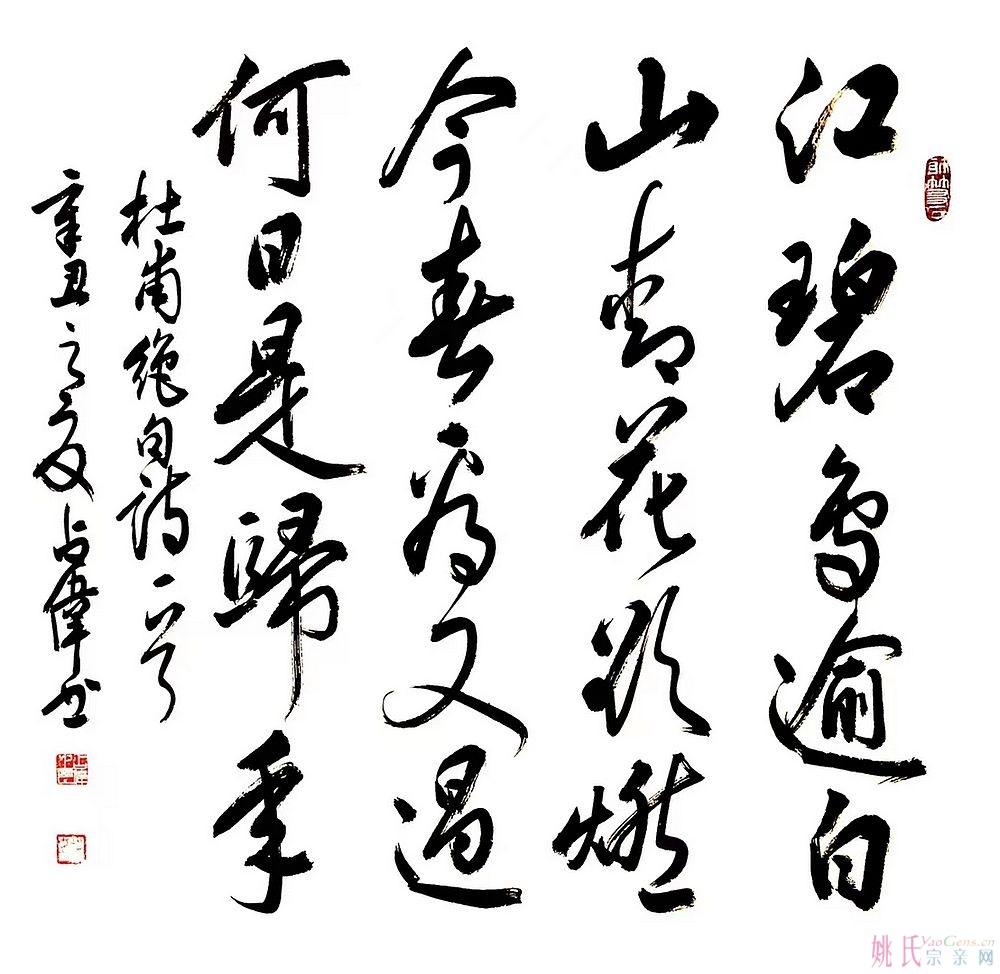 江碧鳥逾白
山青花欲燃
今春看又過
何日是歸年
杜甫絶句詩一首
辛丑之夏占偉书
姚氏宗亲网
YaoGens.cn